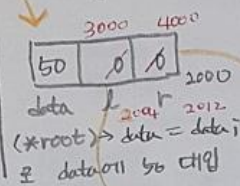 3000 4000
50 0 0
2000
data l r
2004 2012
(*root)→data = data;
로 data에 50 대입